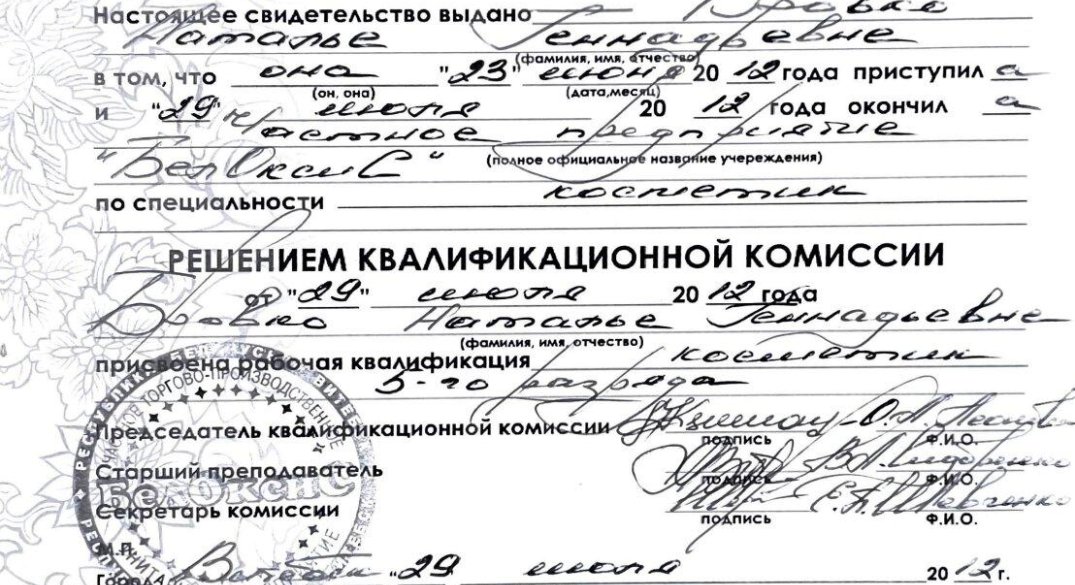 Настоящее свидетельство выдано Бровко
Наталье Геннадьевне
(фамилия, имя, отчество)
в том, что она "23" июня 2012 года приступил а
(он, она) (дата, месяц)
и "29" июля 2012 года окончил а
Частное предприятие
"БелОксиС" (полное официальное название учереждения)
по специальности косметик
РЕШЕНИЕМ КВАЛИФИКАЦИОННОЙ КОМИССИИ
от "29" июля 2012 года
Бровко Наталье Геннадьевне
(фамилия, имя, отчество)
присвоена рабочая квалификация косметик
5-го разряда
Председатель квалификационной комиссии О.А.
подпись Ф.И.О.
Старший преподаватель В.А. Сидоренко
подпись Ф.И.О.
Секретарь комиссии Е.А. Шевченко
подпись Ф.И.О.
М.П.
Город Витебск "29" июля 2012г.
ТОРГОВО-ПРОИЗВОДСТВЕННОЕ
БелОксиС